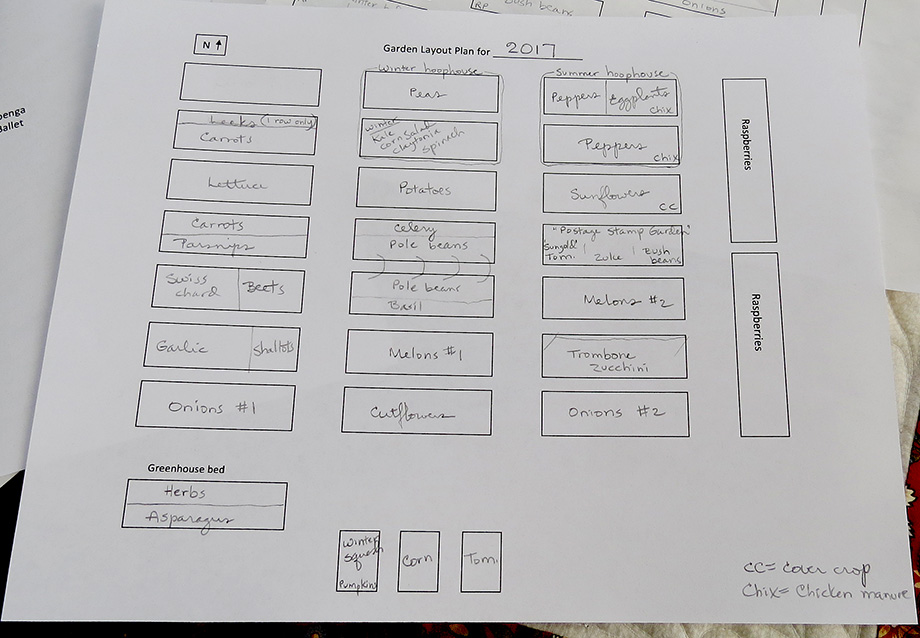 RP
Bush beans
Onions
Ballet
N ↑
Garden Layout Plan for 2017
Winter hoophouse
Summer hoophouse
Peas
Peppers
Eggplants
chix
Leeks (1 row only)
Carrots
Winter
Kale
corn salad
claytonia
spinach
Peppers
chix
Raspberries
Lettuce
Potatoes
Sunflowers
CC
Carrots
Parsnips
Celery
Pole beans
"Postage Stamp Garden"
"Sungold"
Tom.
Zuke
Bush
beans
Swiss
chard
Beets
Pole beans
Basil
Melons #2
Raspberries
Garlic
Shallots
Melons #1
Trombone
Zucchini
Onions #1
Cutflowers
Onions #2
Greenhouse bed
Herbs
Asparagus
Winter
squash
Pumpkins
Corn
Tom.
CC= Cover crop
Chix= Chicken manure